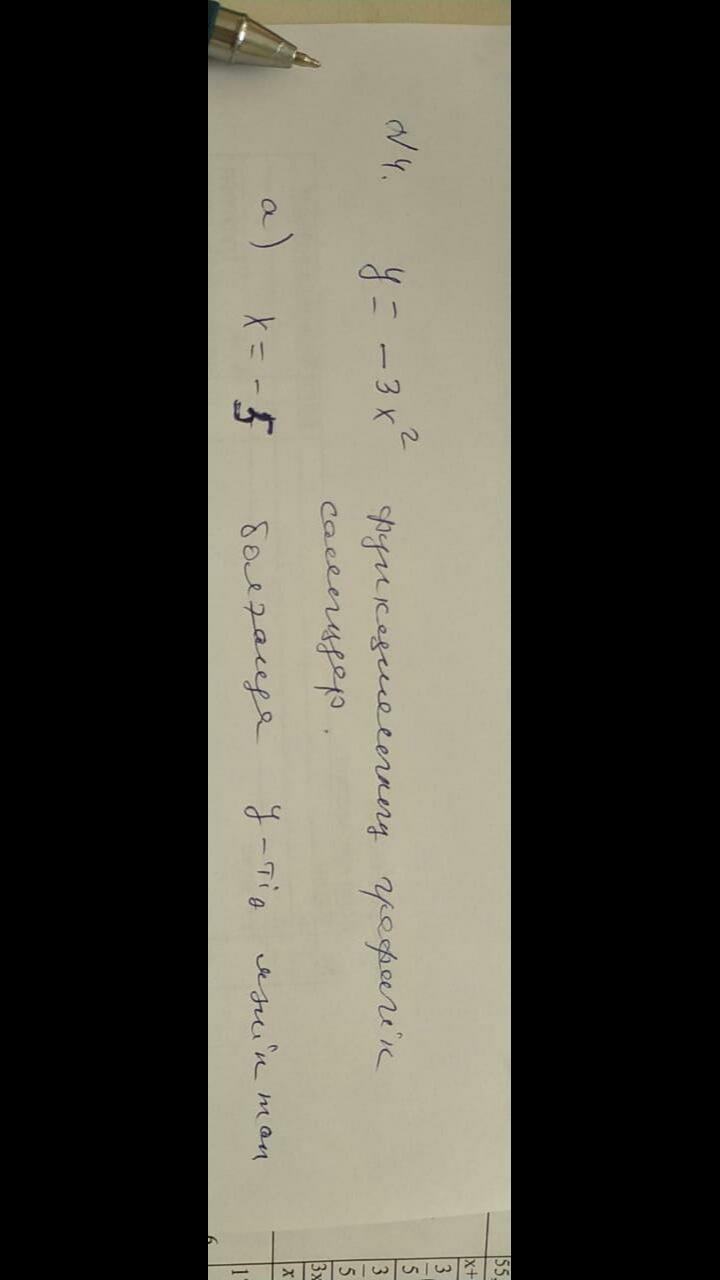 N4. y = -3x² функциясының графигін
салыңдар.
а) x = -5 болғанда y-тің мәнін тап
55.
x+
3
5
3
5
3x
x
1
6